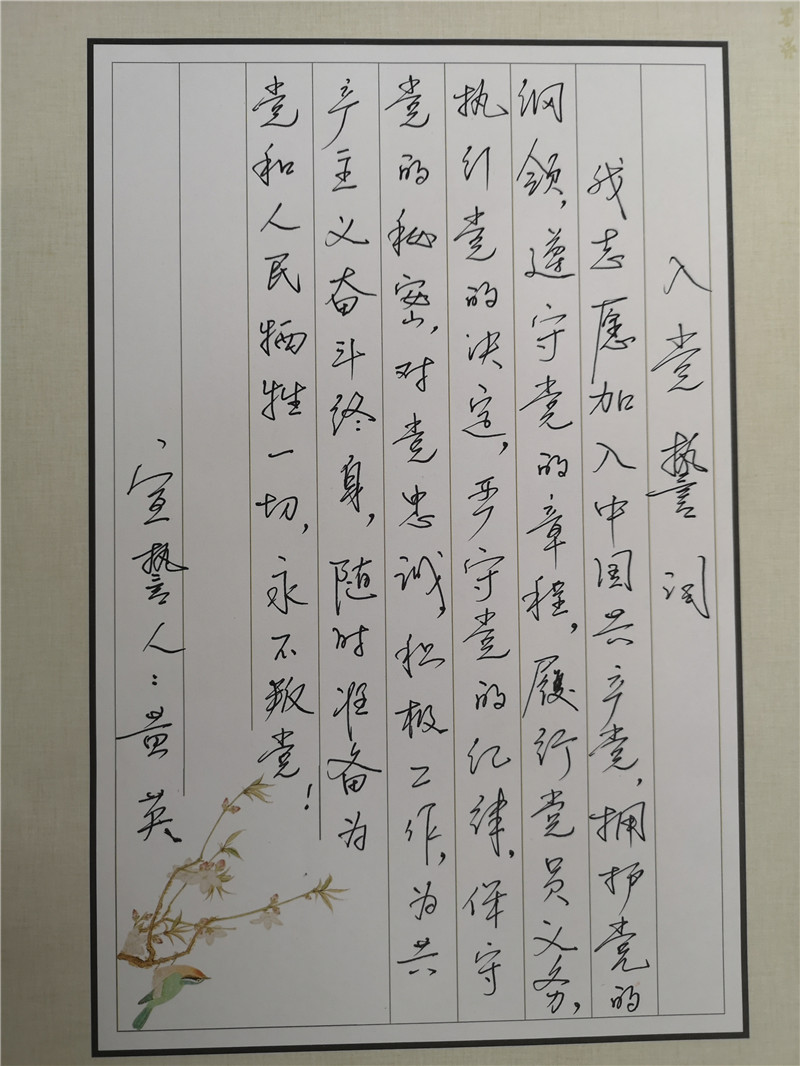 入党誓词
我志愿加入中国共产党，拥护党的
纲领，遵守党的章程，履行党员义务，
执行党的决定，严守党的纪律，保守
党的秘密，对党忠诚，积极工作，为共
产主义奋斗终身，随时准备为
党和人民牺牲一切，永不叛党！
宣誓人：黄英